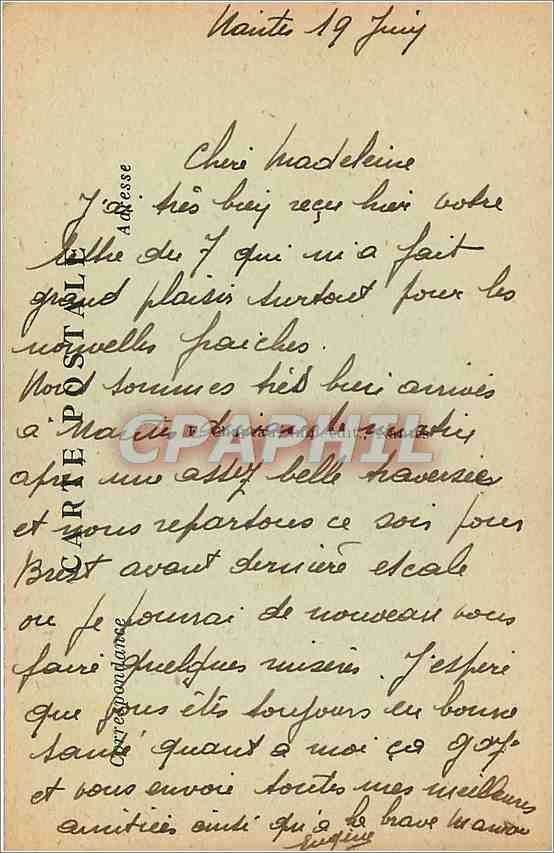 Nantes 19 Juin
Cheré Madeleine
J'ai très bien reçu hier votre
lettre du 7 qui m'a fait
grand plaisir surtout pour les
nouvelles fraiches.
Nous sommes très bien arrivés
à Nantes dimanche matin
apr une assez belle traversée
et nous repartons ce soir pour
Brest avant dernière escale
ou je pourrai de nouveau vous
faire quelques misères. J'espère
que vous êtes toujours en bonne
santé quant à moi ça gaz
et vous envoie toutes mes meilleures
amitiés ainsi qu'a la brave maman
Eugène
CARTE POSTALE
Correspondance
Adresse
CPAPHIL